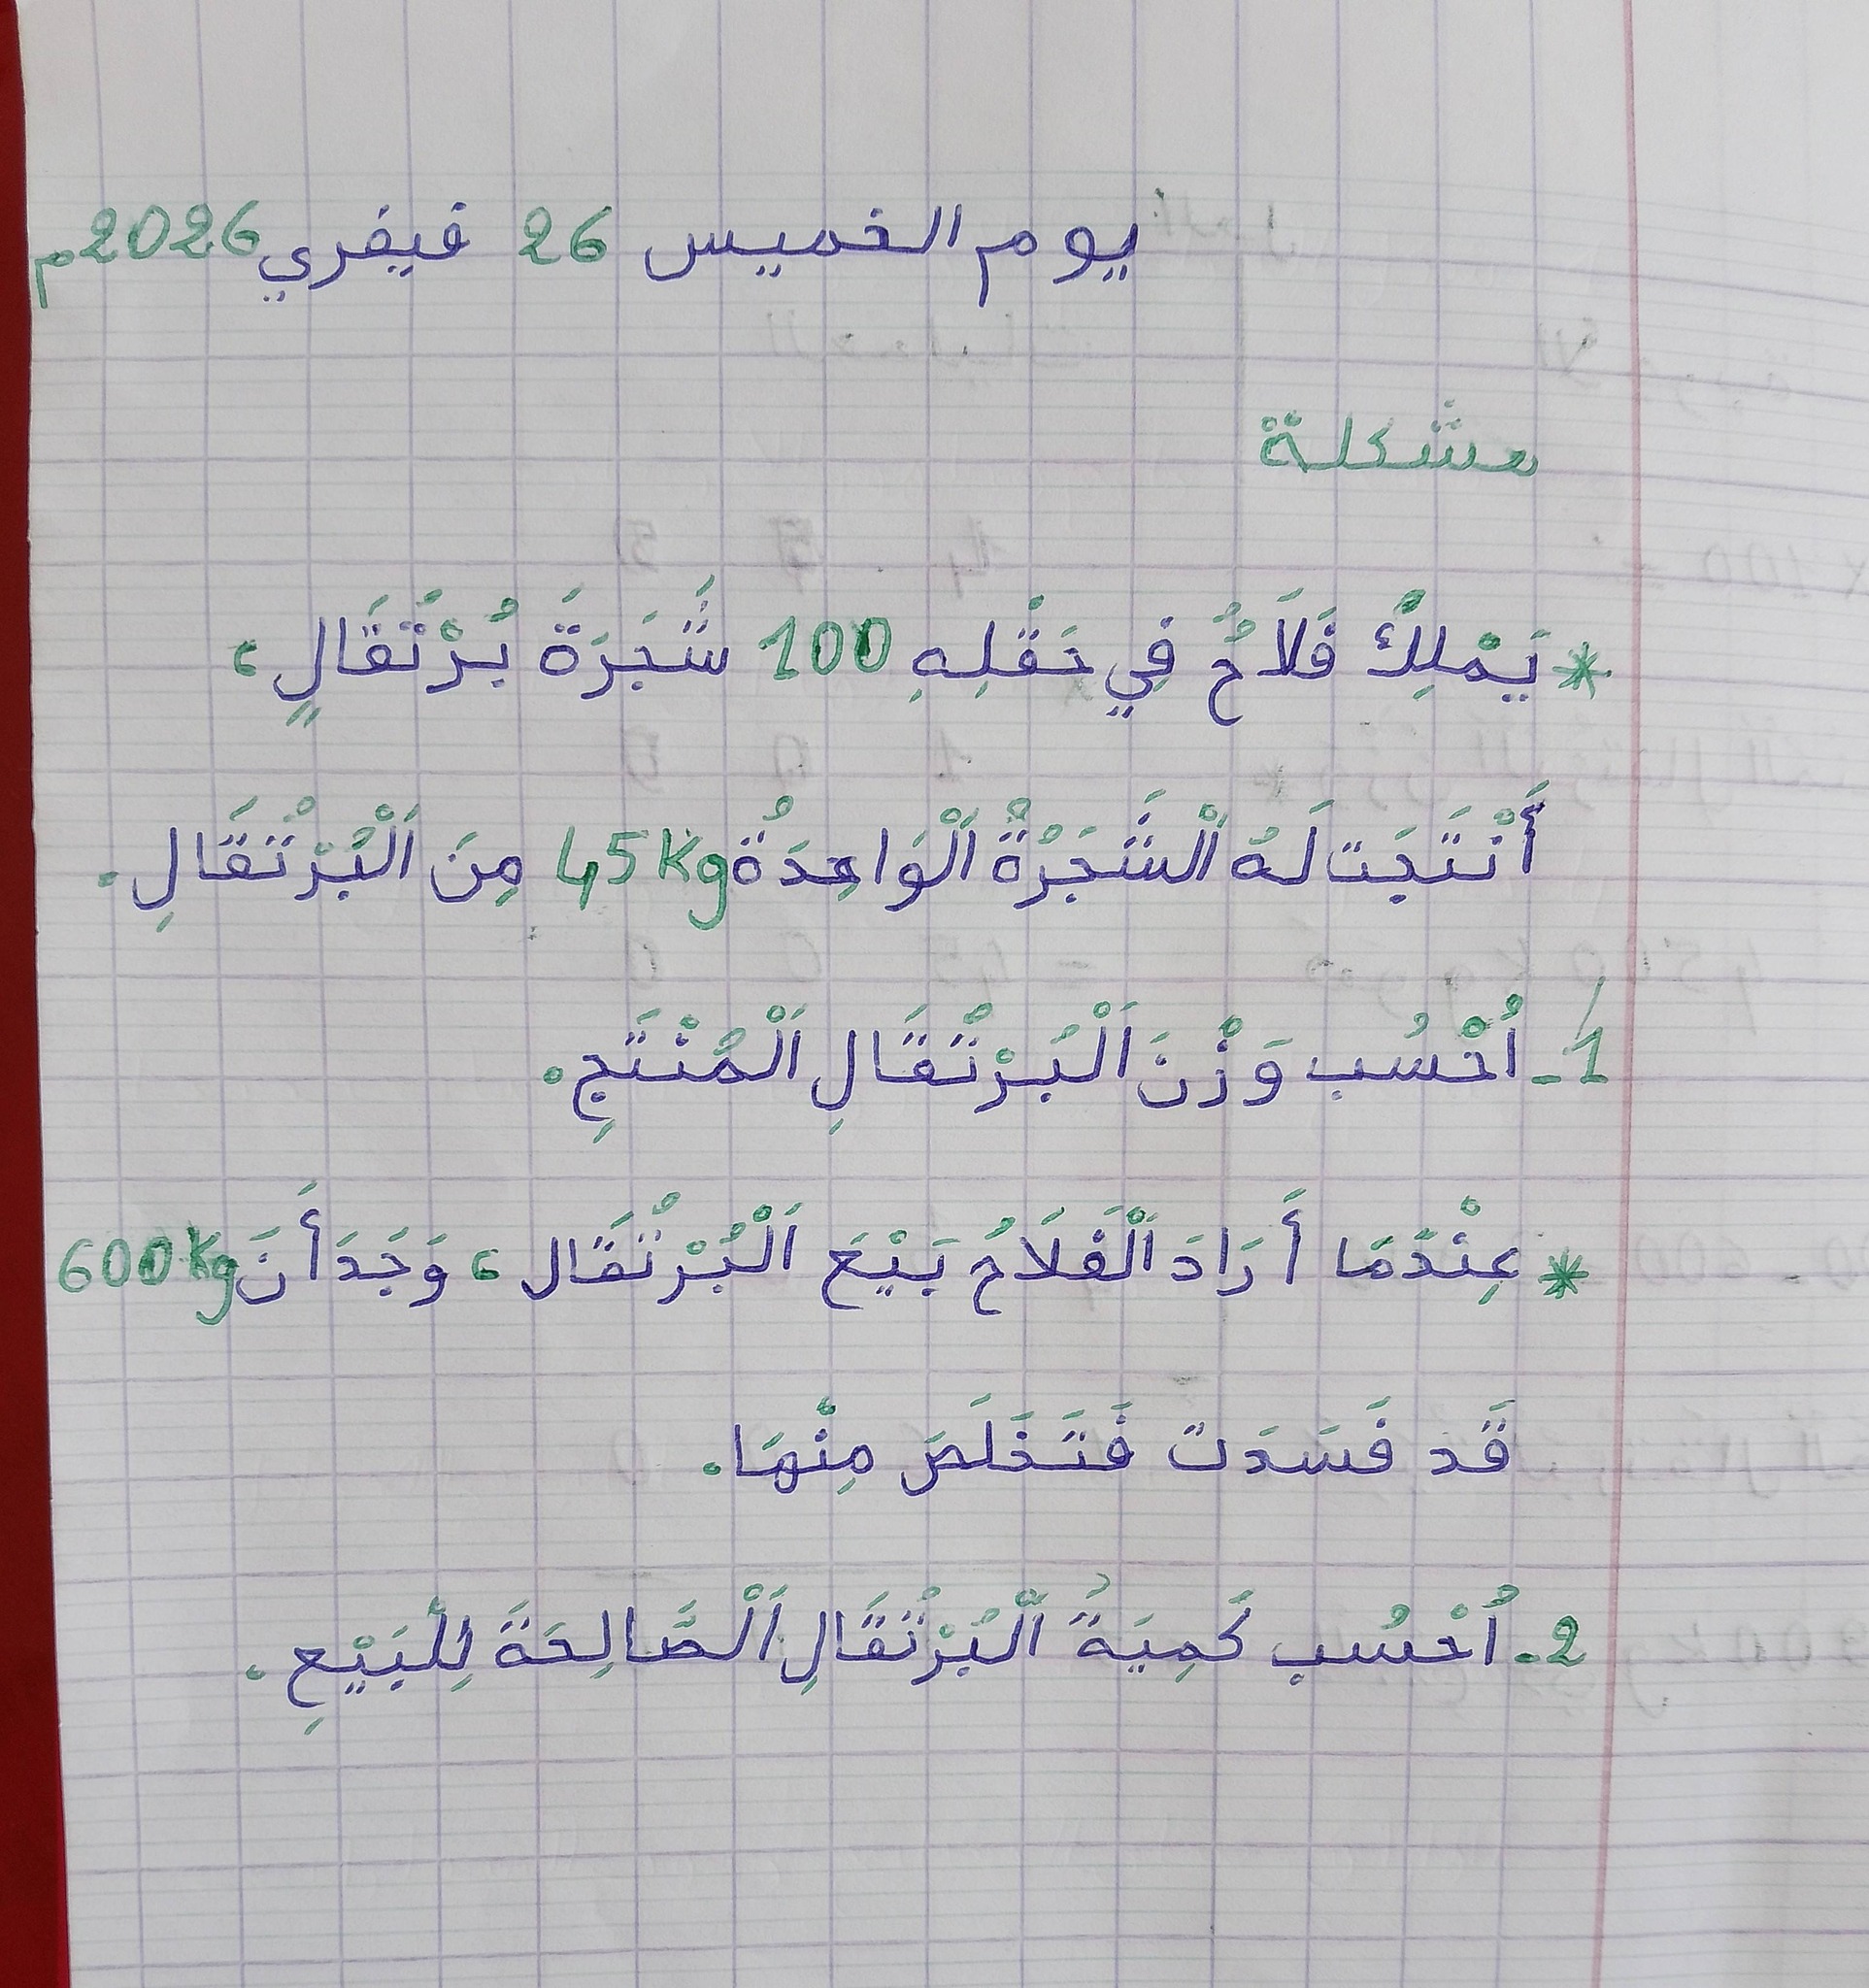 يوم الخميس 26 فيفري 2026م
مشكلة
* يَمْلِكُ فَلَاحُ فِي حَقْلِهِ 100 شَجَرَةَ بُرْتُقَالٍ،
أَنْتَجَت لَهُ اَلْشَجَرْةُ اَلْوَاحِدَةُ 45Kg مِنَ اَلْبُرْتُقَالِ.
1- اُحْسُب وَزْنَ اَلْبُرْتُقَالِ اَلْمُنْتَجِ.
* عِنْدَمَا أَرَادَ اَلْفَلَاحُ بَيْعَ اَلْبُرْتُقَال، وَجَدَ أَنَ 600Kg
قَد فَسَدَت فَتَخَلَصَ مِنْهَا.
2- اُحْسُب كَمِيَةُ اَلْبُرْتُقَالِ اَلْصَّالِحَةَ لِلْبَيْعِ.